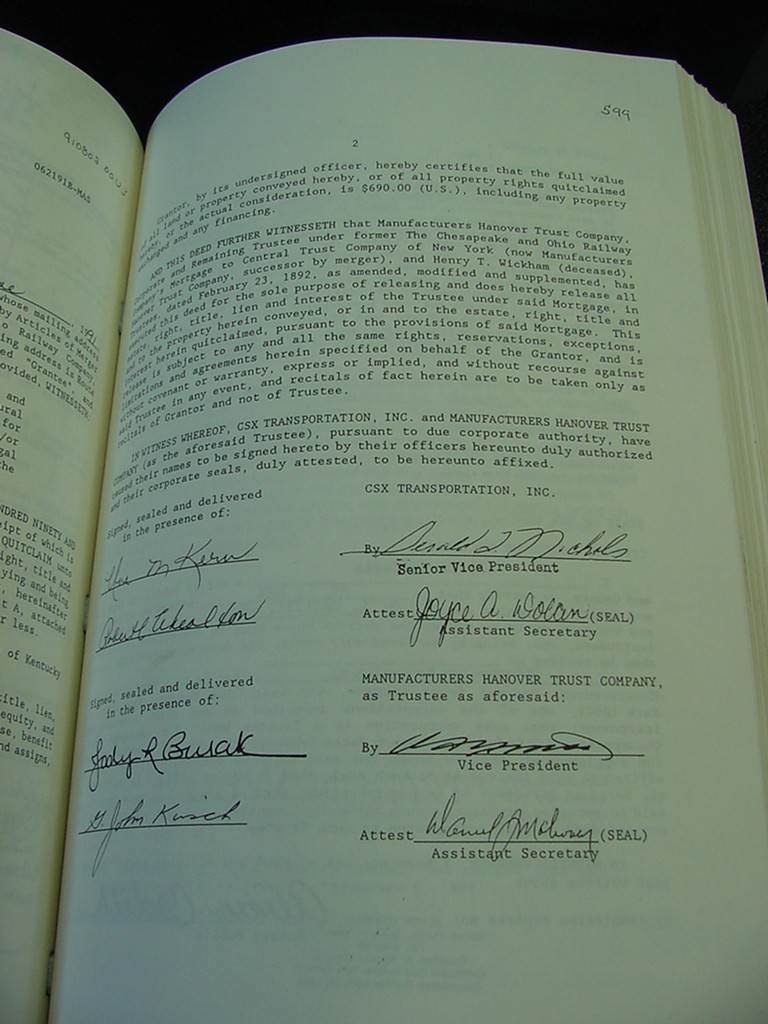 910803 00
062191B-MAS
, 1991,
whose mailing address
by Articles of Merger
o Railway Company,
ing address is
ed "Grantee", and
rovided, WITNESSETH:
and
ural
for
/or
gal
the
NDRED NINETY AND
ipt of which is
QUITCLAIM unto
ight, title and
ying and being
, hereinafter
t A, attached
r less.
of Kentucky
title, lien,
equity, and
se, benefit
nd assigns,
599
2
Grantor, by its undersigned officer, hereby certifies that the full value
of all land or property conveyed hereby, or of all property rights quitclaimed
hereby, or the actual consideration, is $690.00 (U.S.), including any property
exchanged and any financing.
AND THIS DEED FURTHER WITNESSETH that Manufacturers Hanover Trust Company,
Corporate and Remaining Trustee under former The Chesapeake and Ohio Railway
Company's Mortgage to Central Trust Company of New York (now Manufacturers
Hanover Trust Company, successor by merger), and Henry T. Wickham (deceased),
Trustees, dated February 23, 1892, as amended, modified and supplemented, has
executed this deed for the sole purpose of releasing and does hereby release all
estate, right, title, lien and interest of the Trustee under said Mortgage, in
and to the property herein conveyed, or in and to the estate, right, title and
interest herein quitclaimed, pursuant to the provisions of said Mortgage. This
release is subject to any and all the same rights, reservations, exceptions,
limitations and agreements herein specified on behalf of the Grantor, and is
without covenant or warranty, express or implied, and without recourse against
said Trustee in any event, and recitals of fact herein are to be taken only as
recitals of Grantor and not of Trustee.
IN WITNESS WHEREOF, CSX TRANSPORTATION, INC. and MANUFACTURERS HANOVER TRUST
COMPANY (as the aforesaid Trustee), pursuant to due corporate authority, have
caused their names to be signed hereto by their officers hereunto duly authorized
and their corporate seals, duly attested, to be hereunto affixed.
Signed, sealed and delivered
in the presence of:
CSX TRANSPORTATION, INC.
By Gerald L. Nichols
Senior Vice President
M Kern
Attest Joyce A. Dolan (SEAL)
Assistant Secretary
Signed, sealed and delivered
in the presence of:
MANUFACTURERS HANOVER TRUST COMPANY,
as Trustee as aforesaid:
Jody R Busak
By
Vice President
G. John Kirsch
Attest (SEAL)
Assistant Secretary